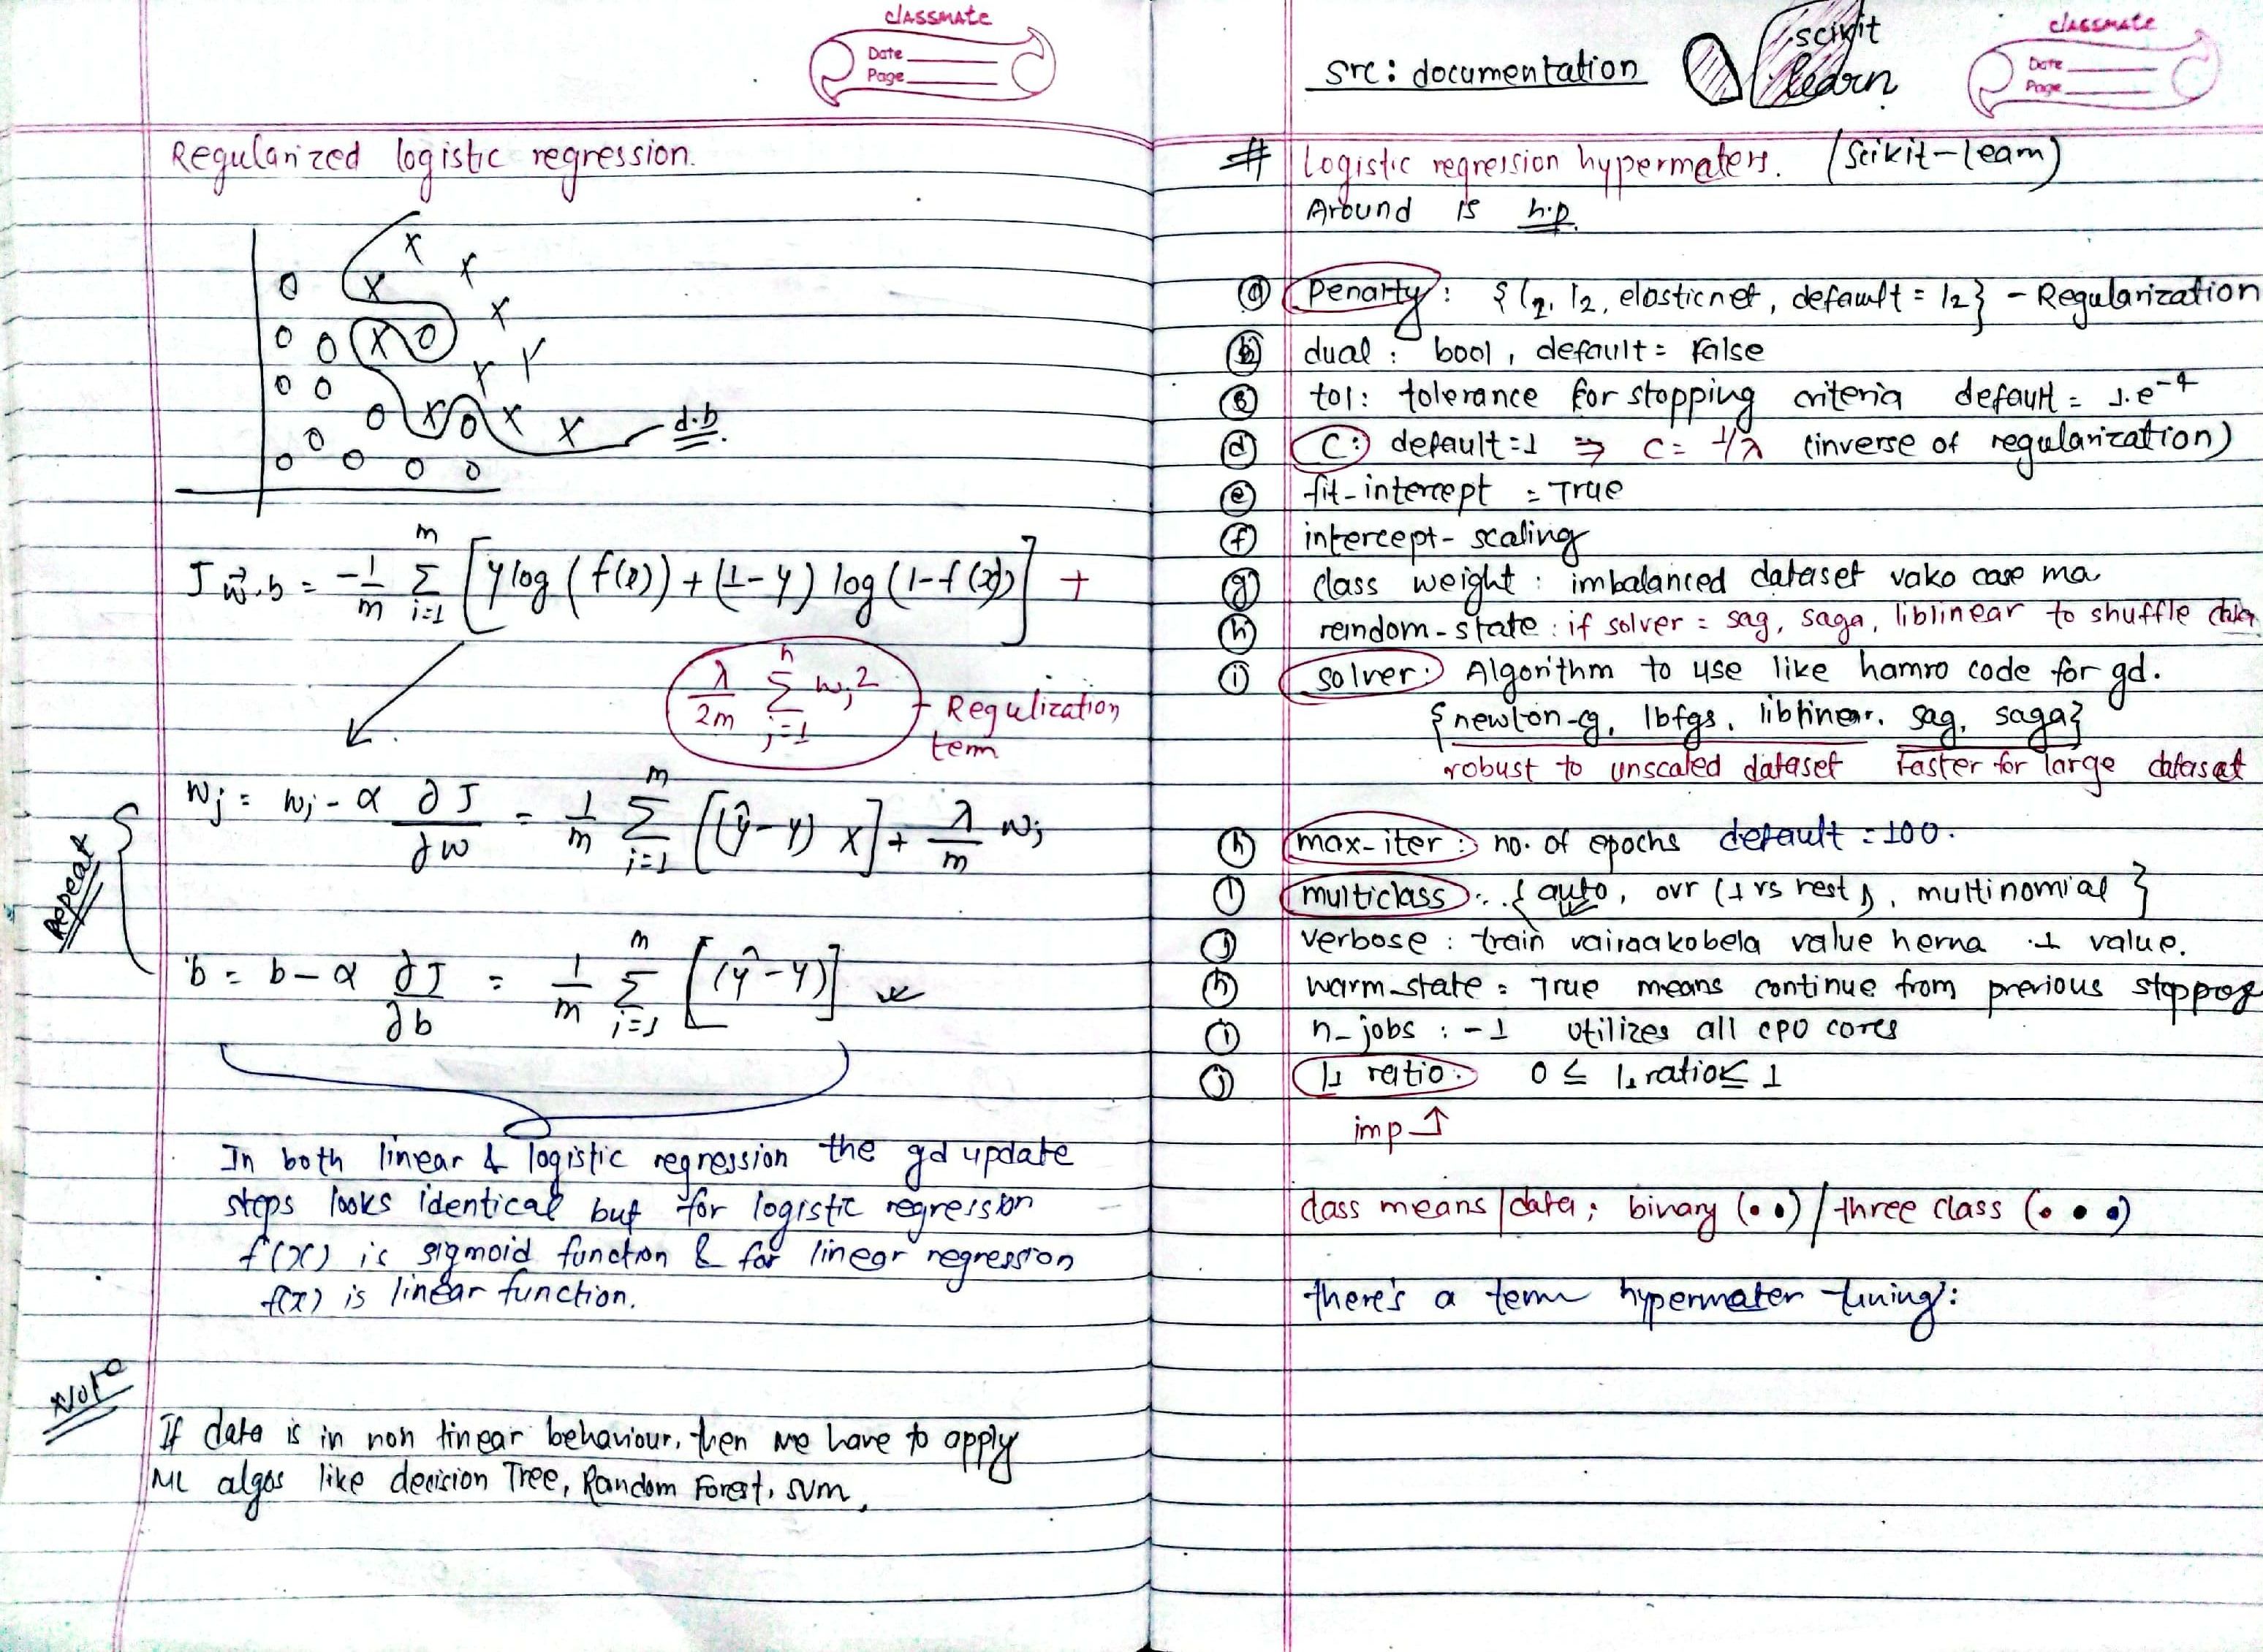 classmate
Date
Page
Regularized logistic regression.
d.b.
J w⃗.b = -1/m Σ i=1 m [y log (f(x)) + (1-y) log (1-f(x))] +
λ/2m Σ j=1 n wj² Regulization
term
Repeat
wj = wj - α ∂J/∂w = 1/m Σ i=1 m [(ŷ-y) x] + λ/m wj
b = b - α ∂J/∂b = 1/m Σ i=1 m [(ŷ-y)]
In both linear & logistic regression the gd update
steps looks identical but for logistic regression
f(x) is sigmoid function & for linear regression
f(x) is linear function.
Note
If data is in non linear behaviour, then we have to apply
ML algos like decision Tree, Random Forest, SVM,
classmate
Date
Page
src: documentation scikit
learn
# Logistic regression hypermaters. (Scikit-learn)
Around is h.p.
(a) Penalty: {l2, l2, elasticnet, default = l2} - Regularization
(b) dual: bool, default = False
(c) tol: tolerance for stopping criteria default = 1.e⁻⁴
(d) C: default=1 ⇒ C = 1/λ (inverse of regularization)
(e) fit-intercept = True
(f) intercept-scaling
(g) class weight: imbalanced dataset vako case ma
(h) random-state: if solver = sag, saga, liblinear to shuffle data
(i) solver: Algorithm to use like hamro code for gd.
{newton-cg, lbfgs, liblinear, sag, saga}
robust to unscaled dataset Faster for large dataset
(h) max-iter: no. of epochs default = 100.
(i) multiclass: {auto, ovr (1 vs rest), multinomial}
(j) verbose: train vairaakobela value herna 1 value.
(h) warm_state = True means continue from previous stoppog
(i) n_jobs: -1 utilizes all cpu cores
(j) l1 ratio: 0 ≤ l1 ratio ≤ 1
imp ↑
class means | data; binary (• •) / three class (• • •)
there's a term hypermater tuning: